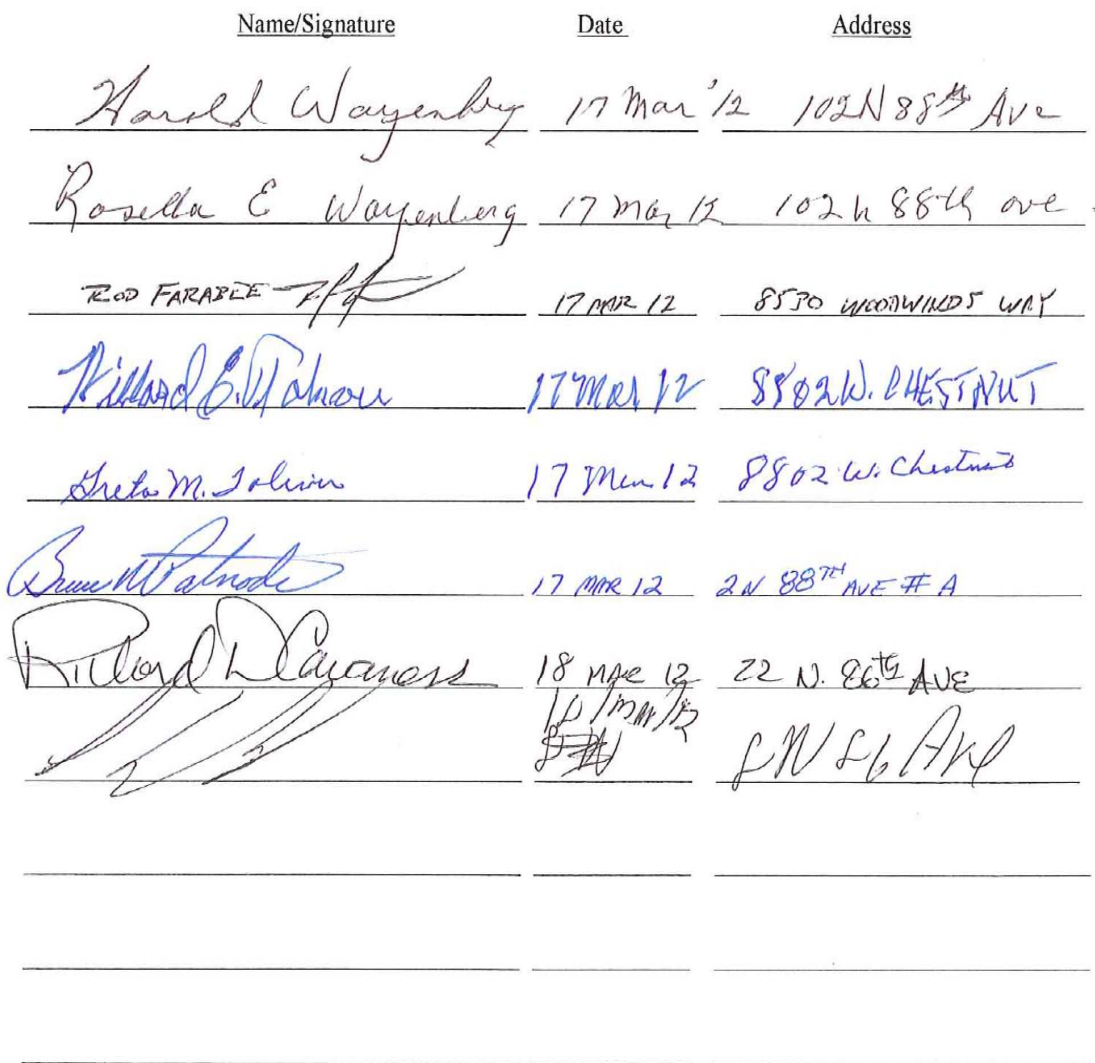 Name/Signature Date Address
Harold Wayenberg 17 Mar '12 102 N 88th Ave
Rosella E Wayenberg 17 Mar 12 102 n 88th ave.
ROD FARABEE 17 MAR 12 8530 WOODWINDS WAY
Willard E. 17 Mar 12 8802 W. CHESTNUT
Greta M. Toliver 17 Mar 12 8802 W. Chestnut
Bruce M Patnode 17 MAR 12 2 N 88TH AVE # A
Richard D Cavaness 18 MAR 12 22 N. 86th AVE
18/Mar/12 8 N 86 Ave